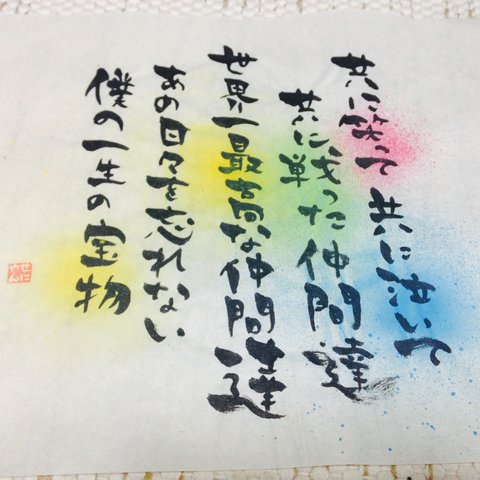 共に笑って 共に泣いて
共に戦った仲間達
世界一最高な仲間達
あの日々を忘れない
僕の一生の宝物
せに
やん